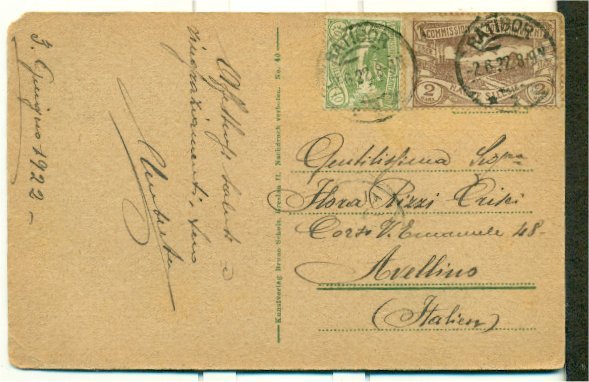 3. Giugno 1922 -
Affettuosi saluti e
ringraziamenti, suo
Umberto
Kunstverlag Bruno Scholz, Nachdruck verboten. No. 40
RATIBOR
2.6.22.8-9N
COMMISSION
2
RATIBOR
Gentilissima Sigra
Flora Rizzi Crisci
Corso V. Emanuele 48-
Avellino
(Italien)